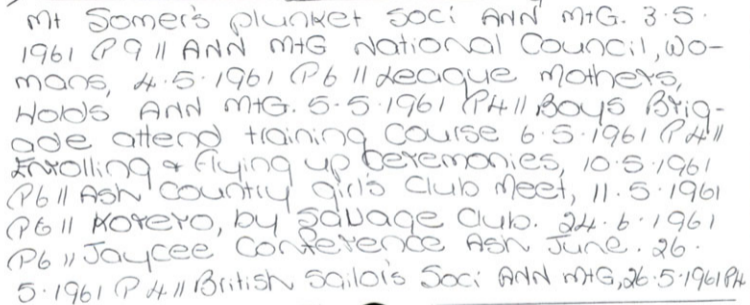 Mt Somer's plunket soci ANN MtG. 3.5.
1961 P9 // ANN MtG National Council, Wo-
mans, 4.5.1961 P6 // League Mothers,
Holds ANN MtG. 5.5.1961 P4 // Boys Brig-
ade attend training course 6.5.1961 P4 //
Enrolling & flying up ceremonies, 10.5.1961
P6 // Ash Country girls Club Meet, 11.5.1961
P6 // Korero, by Savage Club. 24.6.1961
P6 // Jaycee Conference Ash June. 26.
5.1961 P4 // British Sailors Soci ANN MtG, 26.5.1961 P4